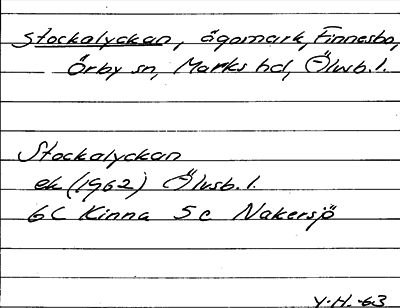 Stockalyckan, ägomark, Finnesbo,
Örby sn, Marks hd, Älvsb. l.
Stockalyckan
ek (1962) Älvsb. l.
6C Kinna 5c Nakersjö
Y.H. -63